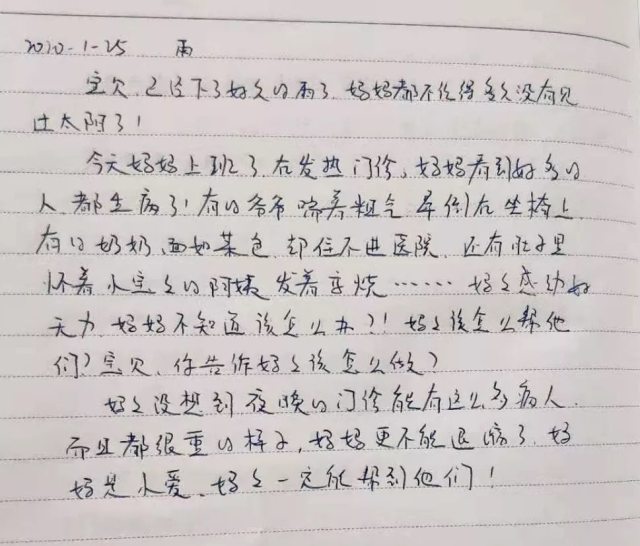 2020-1-25 雨
宝贝,已经下了好久的雨了,妈妈都不记得多久没有见
过太阳了!
今天妈妈上班了,在发热门诊。妈妈看到好多的
人都生病了!有的爷爷喘着粗气晕倒在坐椅上
有的奶奶,面如菜色,却住不进医院,还有肚子里
怀着小宝宝的阿姨发着高烧……妈妈感动好
无力,妈妈不知道该怎么办?!妈妈该怎么帮他
们?宝贝,你告诉妈妈该怎么做?
妈妈没想到夜晚的门诊能有这么多病人,
而且都很重的样子,妈妈更不能退缩了,妈
妈是小爱,妈妈一定能帮到他们!